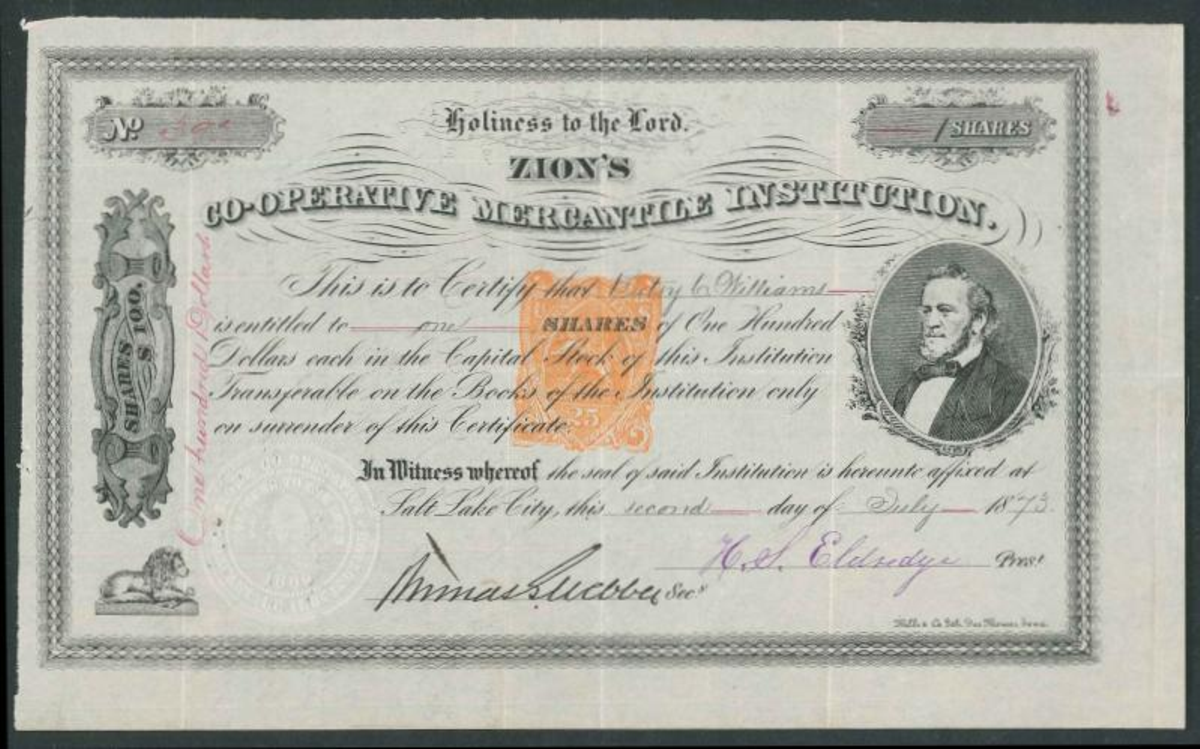 No
Holiness to the Lord.
1 / SHARES
ZION'S
CO-OPERATIVE MERCANTILE INSTITUTION.
SHARES $ 100.
One hundred Dollars
This is to Certify that Betsy C Williams
is entitled to one SHARES of One Hundred
Dollars each in the Capital Stock of this Institution
Transferable on the Books of the Institution only
on surrender of this Certificate.
25
In Witness whereof the seal of said Institution is hereunto affixed at
Salt Lake City, this second day of July 1873.
H. S. Eldredge Prest
Thomas G. Webber Secy
Mills & Co. Lith. Des Moines, Iowa.